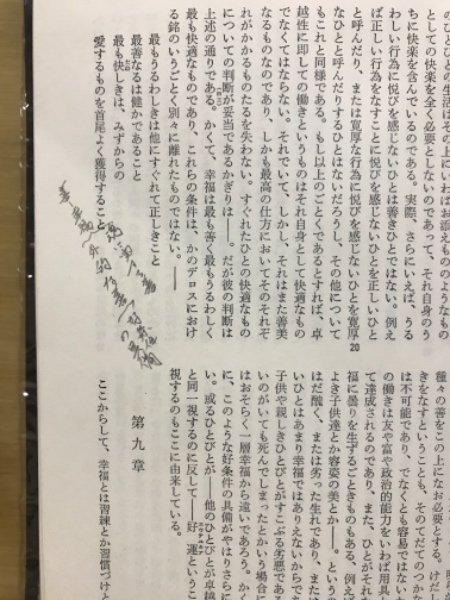 のひとびとの生活はその上にいわばお添えもののようなもの
としての快楽を全く必要としないのであって、それ自身のう
ちに快楽を含んでいるのである。実際、さらにいえば、うる
わしい行為に悦びを感じないひとは善きひとではない。例え
ば正しい行為をなすことに悦びを感じないひとを正しいひと
と呼んだり、または寛厚な行為に悦びを感じないひとを寛厚
20
なひとと呼んだりするひとはないだろうし、その他について
もこれと同様である。もし以上のごとくであるとすれば、卓
越性に即しての働きというものはそれ自身として快適なもの
でなくてはならない。それでいて、しかし、それはまた善美
なるものなのであり、しかも最高の仕方においてそのそれぞ
れがかかるものたるを失わない。すぐれたひとの快適なもの
についての判断が妥当であるかぎりは――。だが彼の判断は
上述の通りである。かくて、幸福は最も善く最もうるわしく
最も快適なものであり、これらの条件は、かのデロスにおけ
る銘のいうごとく別々に離れたものではない。――
最もうるわしきは他にすぐれて正しきこと
最善なるは健かであること
最も快しきは、みずからの
愛するものを首尾よく獲得すること
種々の善をこの上になお必要とする。けだし
きをなすということも、そのてだてのつかな
は不可能であり、でなくとも容易ではない
の働きは友や富や政治的能力をいわば用具
て達成されるのであり、また、ひとがそれ
福に曇りを生ずるごときものもある、例えば
よき子供達とか容姿の美とか――。という
はだ醜く、または劣った生れであり、また
いひとはあまり幸福ではありえないからで
子供や親しきひとびとがすこぶる劣悪である
いのがいても死んでしまったとかいう場合に
はおそらく一層幸福から遠いであろう。かく
に、このような好条件の具備がやはりさらに
い。或るひとびとが――他のひとびとが卓越
と同一視するのに反して――好運というこ
視するのもここに由来している。
第九章
ここからして、幸福とは習練とか習慣づけと